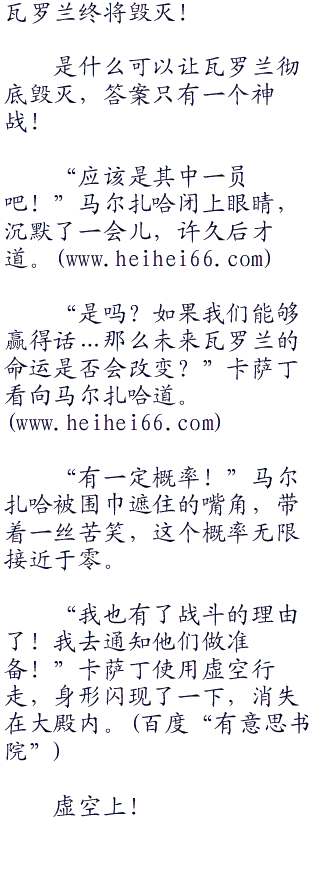 瓦罗兰终将毁灭！
是什么可以让瓦罗兰彻
底毁灭，答案只有一个神
战！
“应该是其中一员
吧！”马尔扎哈闭上眼睛，
沉默了一会儿，许久后才
道。(www.heihei66.com)
“是吗？如果我们能够
赢得话…那么未来瓦罗兰的
命运是否会改变？”卡萨丁
看向马尔扎哈道。
(www.heihei66.com)
“有一定概率！”马尔
扎哈被围巾遮住的嘴角，带
着一丝苦笑，这个概率无限
接近于零。
“我也有了战斗的理由
了！我去通知他们做准
备！”卡萨丁使用虚空行
走，身形闪现了一下，消失
在大殿内。(百度“有意思书
院”)
虚空上！